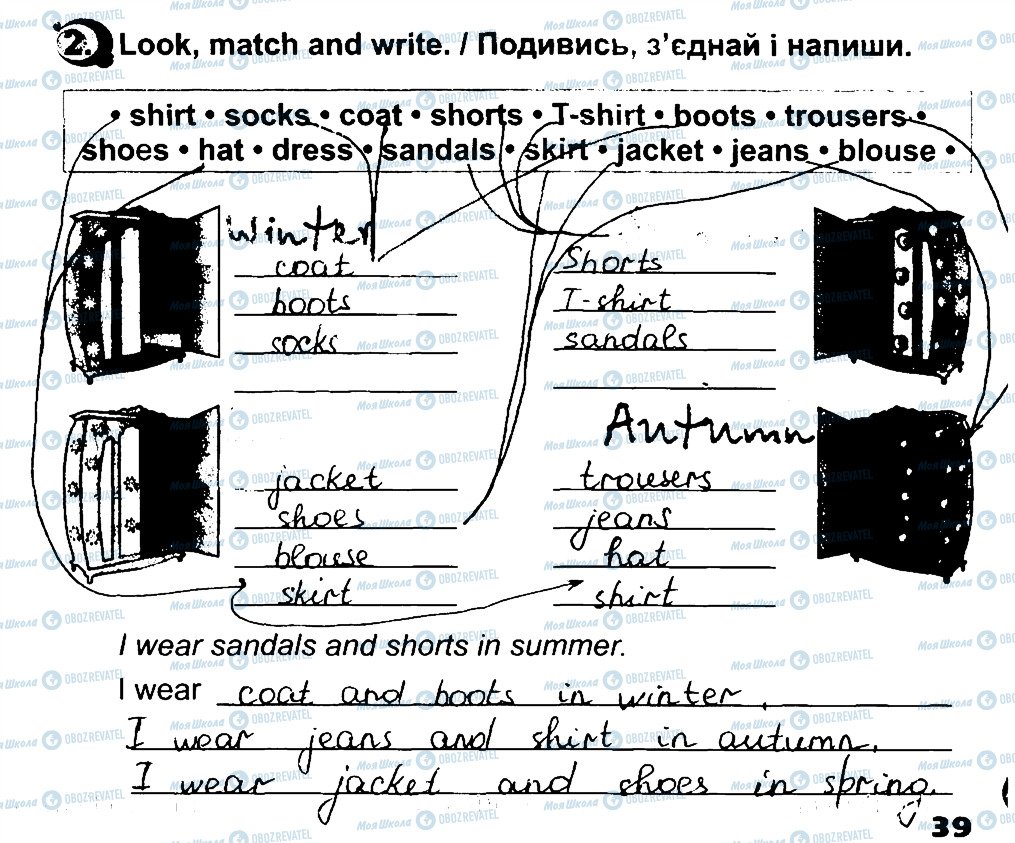 2. Look, match and write. / Подивись, з'єднай і напиши.
• shirt • socks • coat • shorts • T-shirt • boots • trousers •
shoes • hat • dress • sandals • skirt • jacket • jeans • blouse •
Winter
coat
boots
socks
Shorts
T-shirt
sandals
jacket
shoes
blouse
skirt
Autumn
trousers
jeans
hat
shirt
I wear sandals and shorts in summer.
I wear coat and boots in winter.
I wear jeans and shirt in autumn.
I wear jacket and shoes in spring.
39
МояШкола OBOZREVATEL